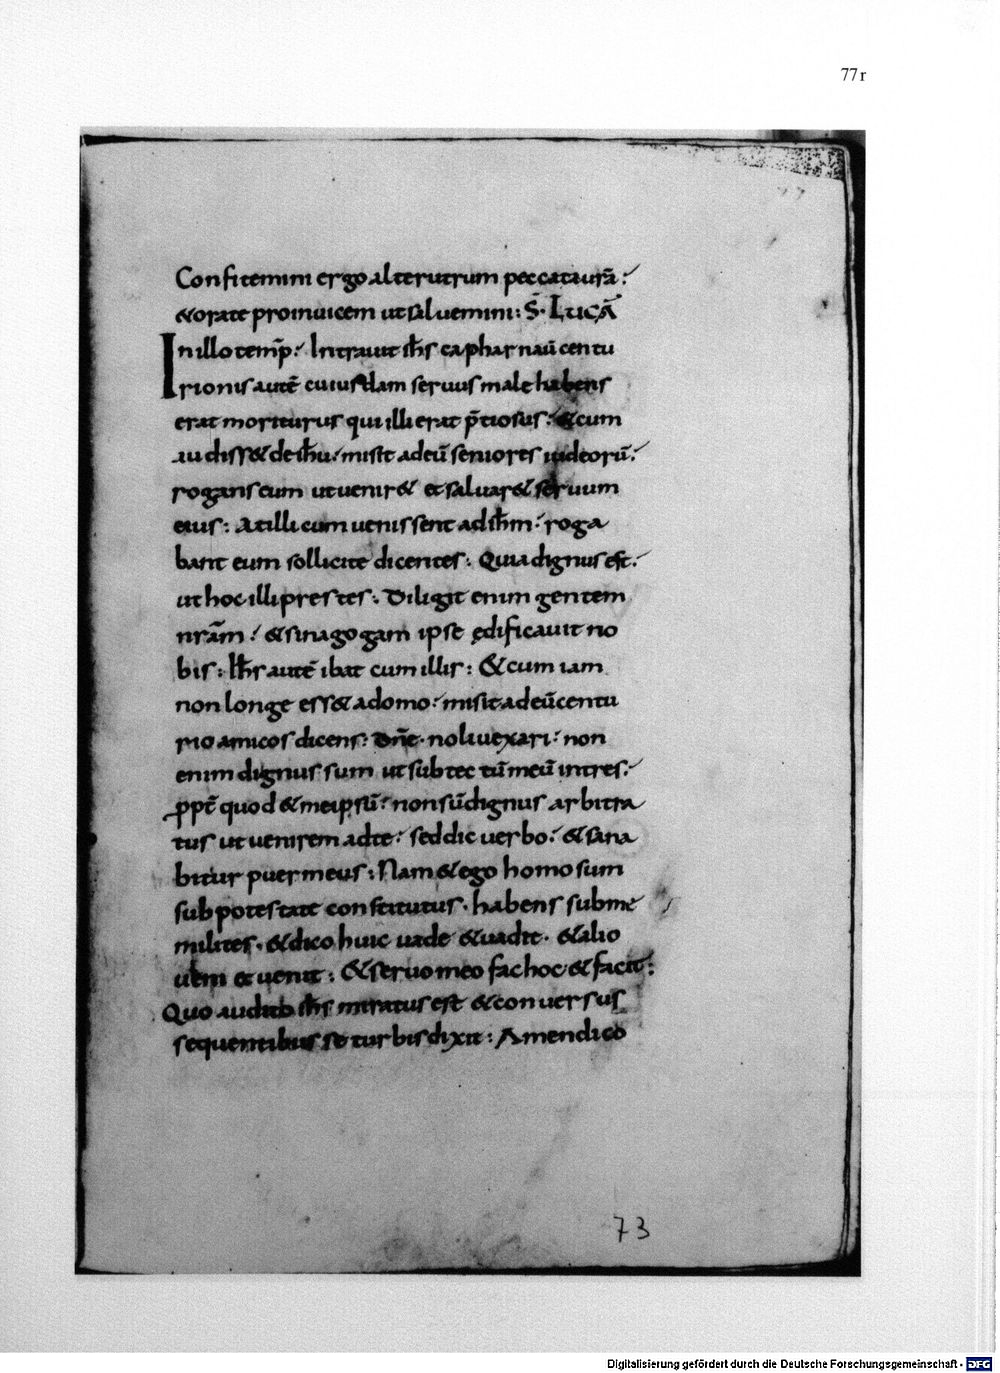 77r
Confitemini ergo alterutrum peccata ur̄a:
& orate pro inuicem ut saluemini: S̄. LUCĀ
In illo temp̄: Intrauit ih̄s capharnaū centu
rionis autē cuiusdam seruus male habens
erat moriturus qui illi erat p̄tiosus: & cum
audiss& de ih̄u: misit ad eū seniores iudeorū:
rogans eum ut uenir& et saluar& seruum
eius: At illi cum uenissent ad ih̄m: roga
bant eum sollicite dicentes: Quia dignus est:
ut hoc illi prestes: Diligit enim gentem
nr̄am: & sinagogam ipse ędificauit no
bis: Ih̄s autē ibat cum illis: & cum iam
non longe ess& a domo: misit ad eū centu
rio amicos dicens: Dn̄e. noli uexari: non
enim dignus sum ut sub tectū meū intres:
ꝓpt̄ quod & me ipsū: non sū dignus arbitra
tus ut uenirem ad te: sed dic uerbo: & sana
bitur puer meus: Nam & ego homo sum
sub potestate constitutus. habens sub me
milites. & dico huic uade & uadit. & alio
ueni et uenit: & seruo meo fac hoc & facit:
Quo audito ih̄s miratus est & conuersus
sequentibus se turbis dixit: Amen dico
73
Digitalisierung gefördert durch die Deutsche Forschungsgemeinschaft - DFG